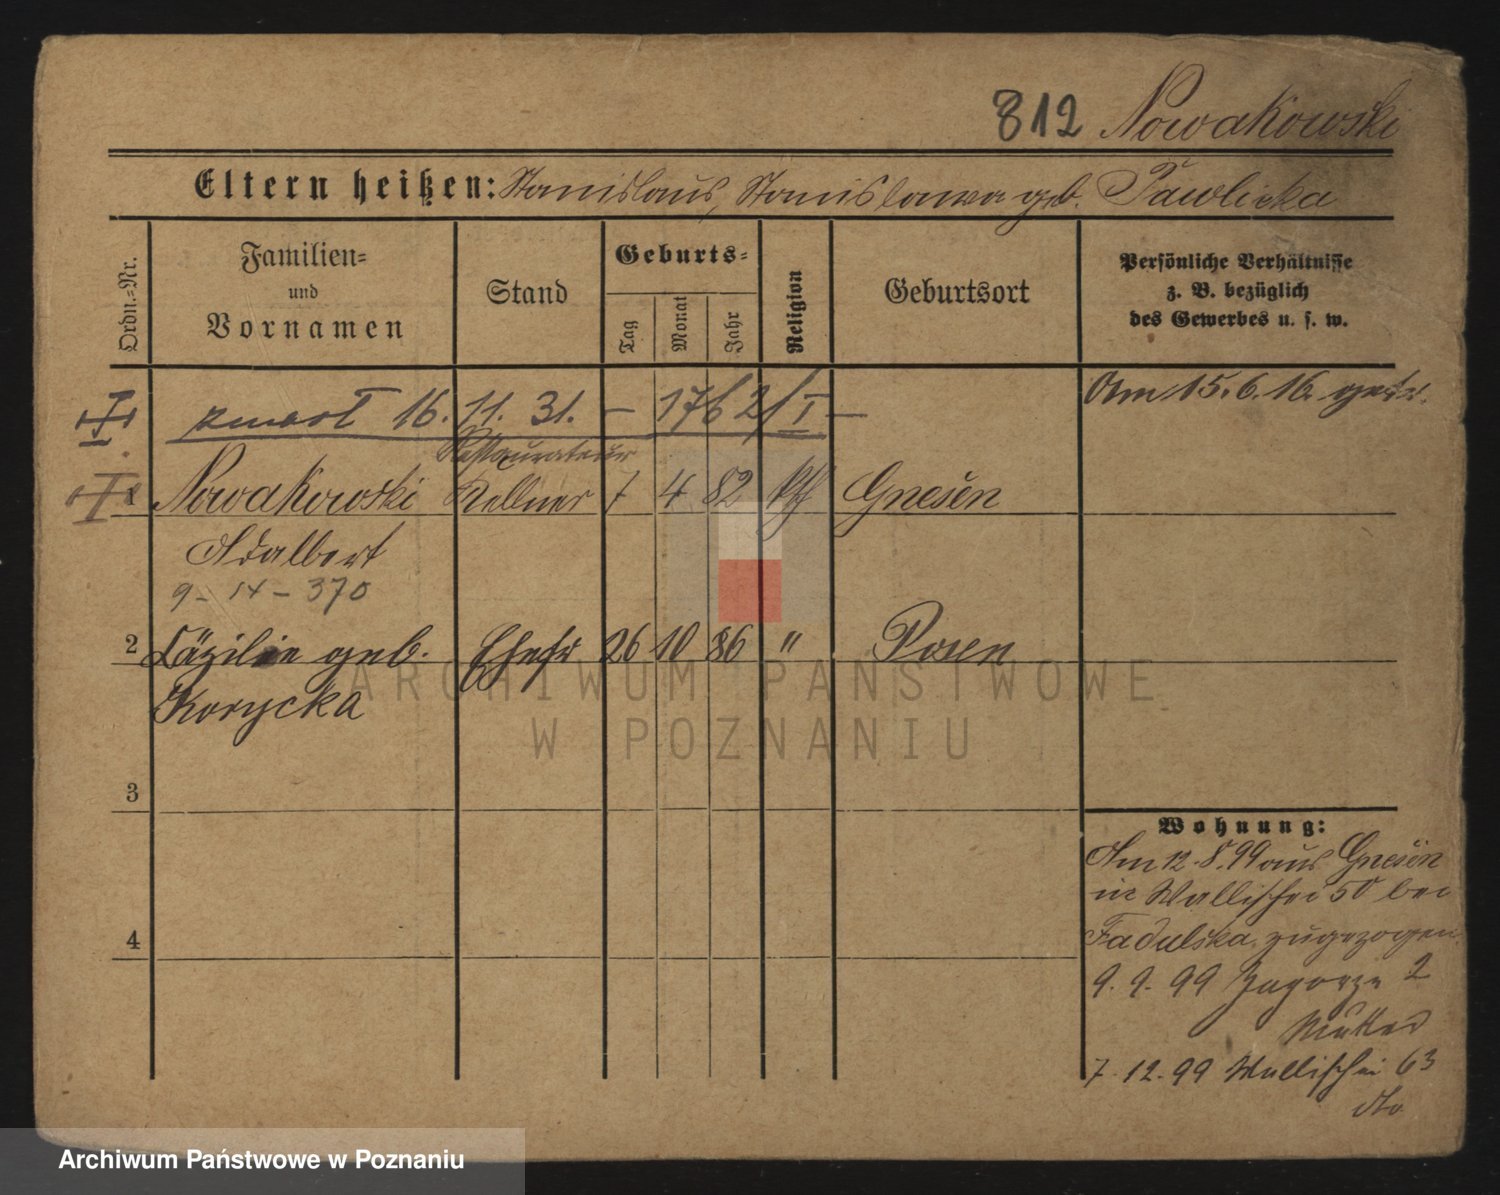 812 Nowakowski
Eltern heißen: Stanislaus, Stanislawa geb. Pawlicka
Ordn.-Nr.
Familien-
und
Vornamen
Stand
Geburts-
Tag
Monat
Jahr
Religion
Geburtsort
Persönliche Verhältnisse
z. B. bezüglich
des Gewerbes u. s. w.
Am 15.6.16. getr.
zmarł 16. 11. 31. – 1762/I –
Restaurateur
Nowakowski Kellner 7 4 82 kth Gnesen
Adalbert
9 - 14 - 370
2 Cäzilie geb. Ehefr 26 10 86 " Posen
Korycka
3
4
Wohnung:
Am 12.8.99 aus Gnesen
in Wallischei 50 bei
Fadulska zugezogen
9. 9. 99 Zagorze 2
Mutter
7.12.99 Wallischei 63
dto
ARCHIWUM PAŃSTWOWE
W POZNANIU
Archiwum Państwowe w Poznaniu